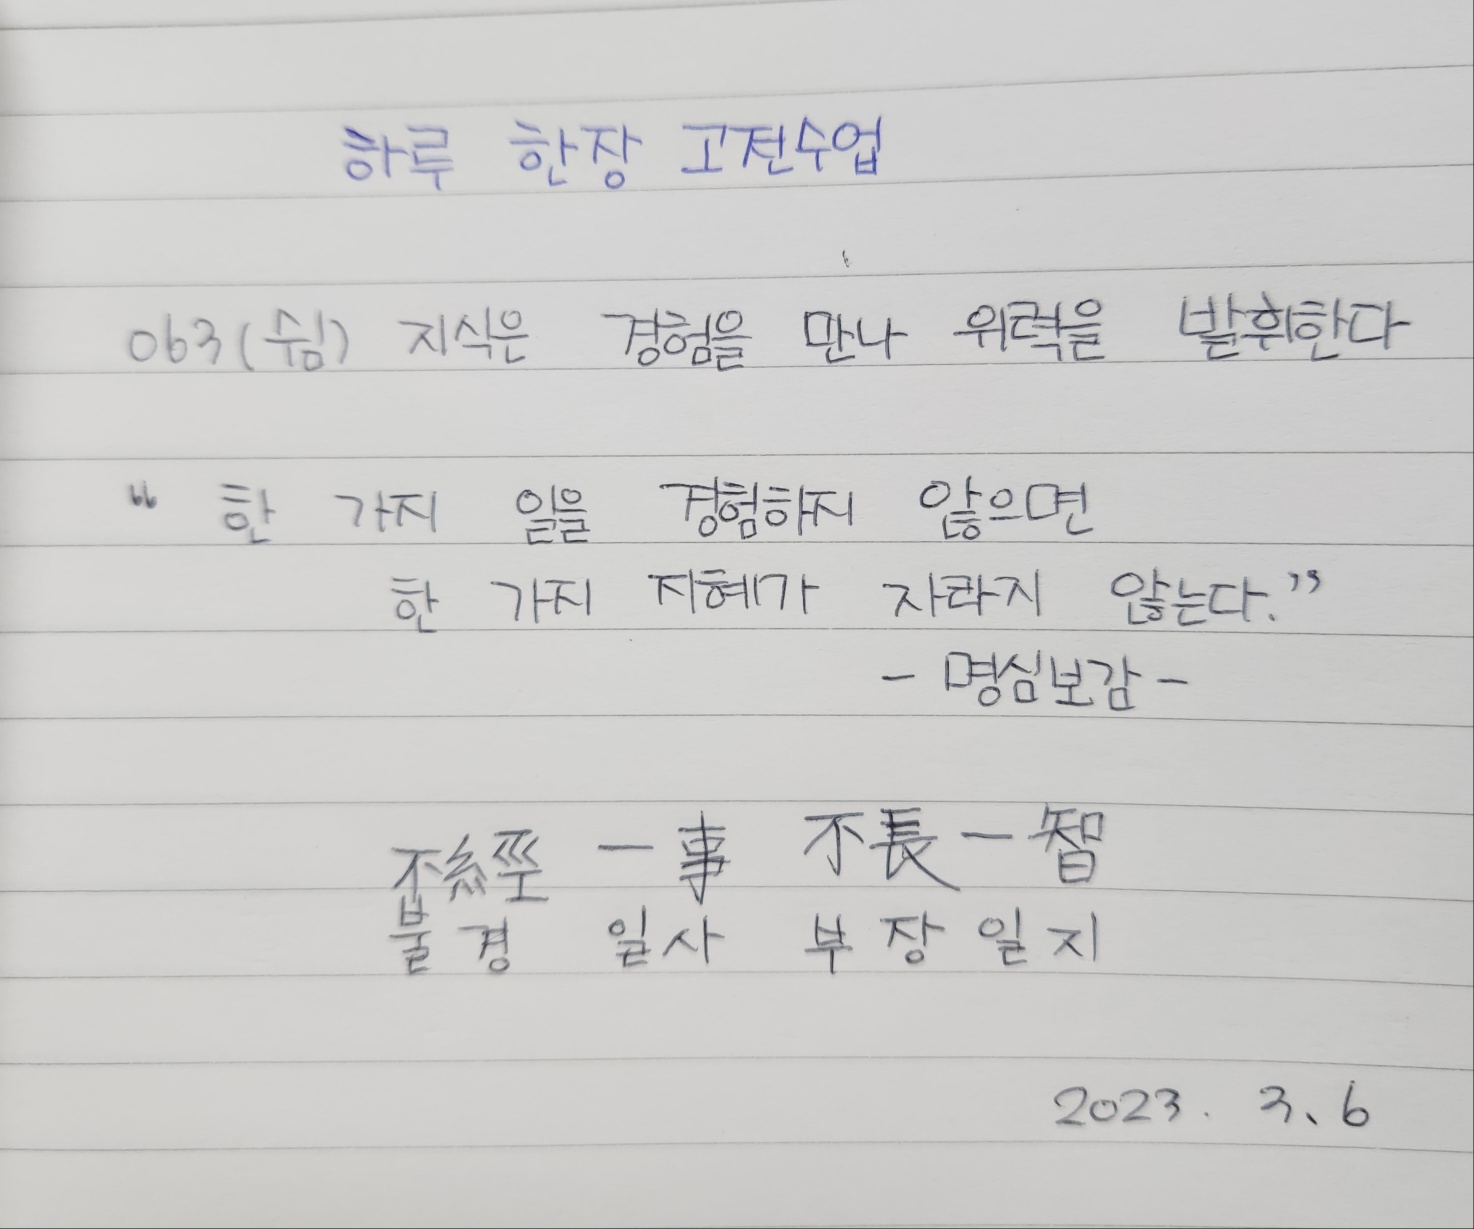 하루 한장 고전수업
063(쉼) 지식은 경험을 만나 위력을 발휘한다
“ 한 가지 일을 경험하지 않으면
한 가지 지혜가 자라지 않는다.”
- 명심보감 -
不經 一事 不長一智
불경 일사 부장일지
2023. 3. 6